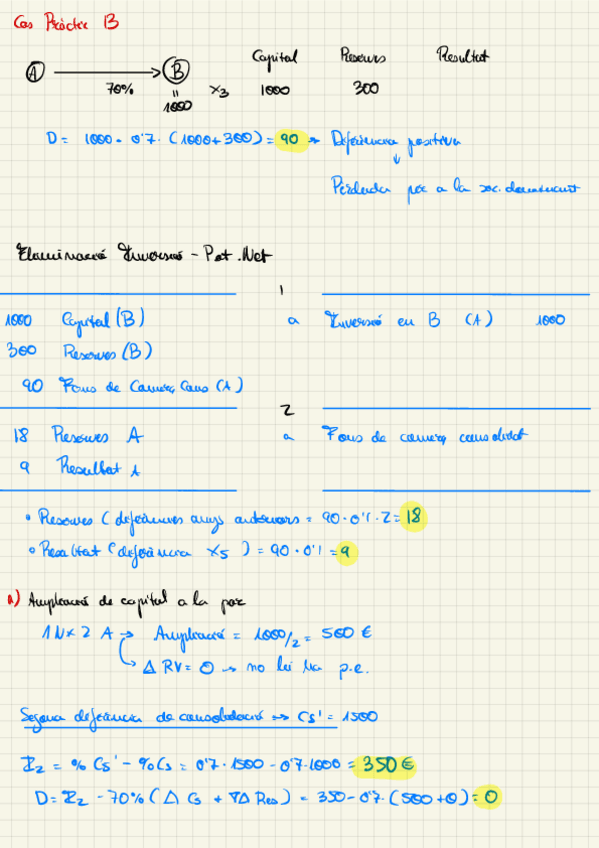 Cas Pràctic B
Capital Reserves Resultat
A B
70% 1000 X3 1000 300
D = 1000 - 0'7 · (1000 + 300) = 90 → Diferència positiva
↓
Pèrdua per a la soc. dominant
Eliminació Inversió - Pat. Net
1
1000 Capital (B) a Inversió en B (A) 1000
300 Reserves (B)
90 Fons de Comerç Cons (A)
2
18 Reserves A a Fons de comerç consolidat
9 Resultat A
• Reserves (diferències anys anteriors = 90 · 0'1 · 2 = 18
• Resultat (diferència X5) = 90 · 0'1 = 9
a) Ampliació de capital a la par
1N x 2A → Ampliació = 1000/2 = 500 €
→ Δ RV = 0 → no hi ha p.e.
Segona diferència de consolidació → CS' = 1500
I2 = % CS' - % CS = 0'7 · 1500 - 0'7 · 1000 = 350 €
D = I2 - 70% (Δ CS + ∇Δ Res) = 350 - 0'7 · (500 + 0) = 0